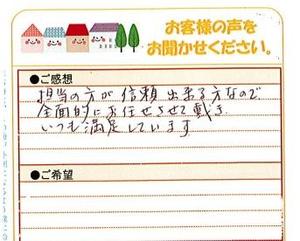 お客様の声を
お聞かせください。
●ご感想
担当の方が信頼出来る方なので
全面的にお任せさせて戴き
いつも満足しています
●ご希望